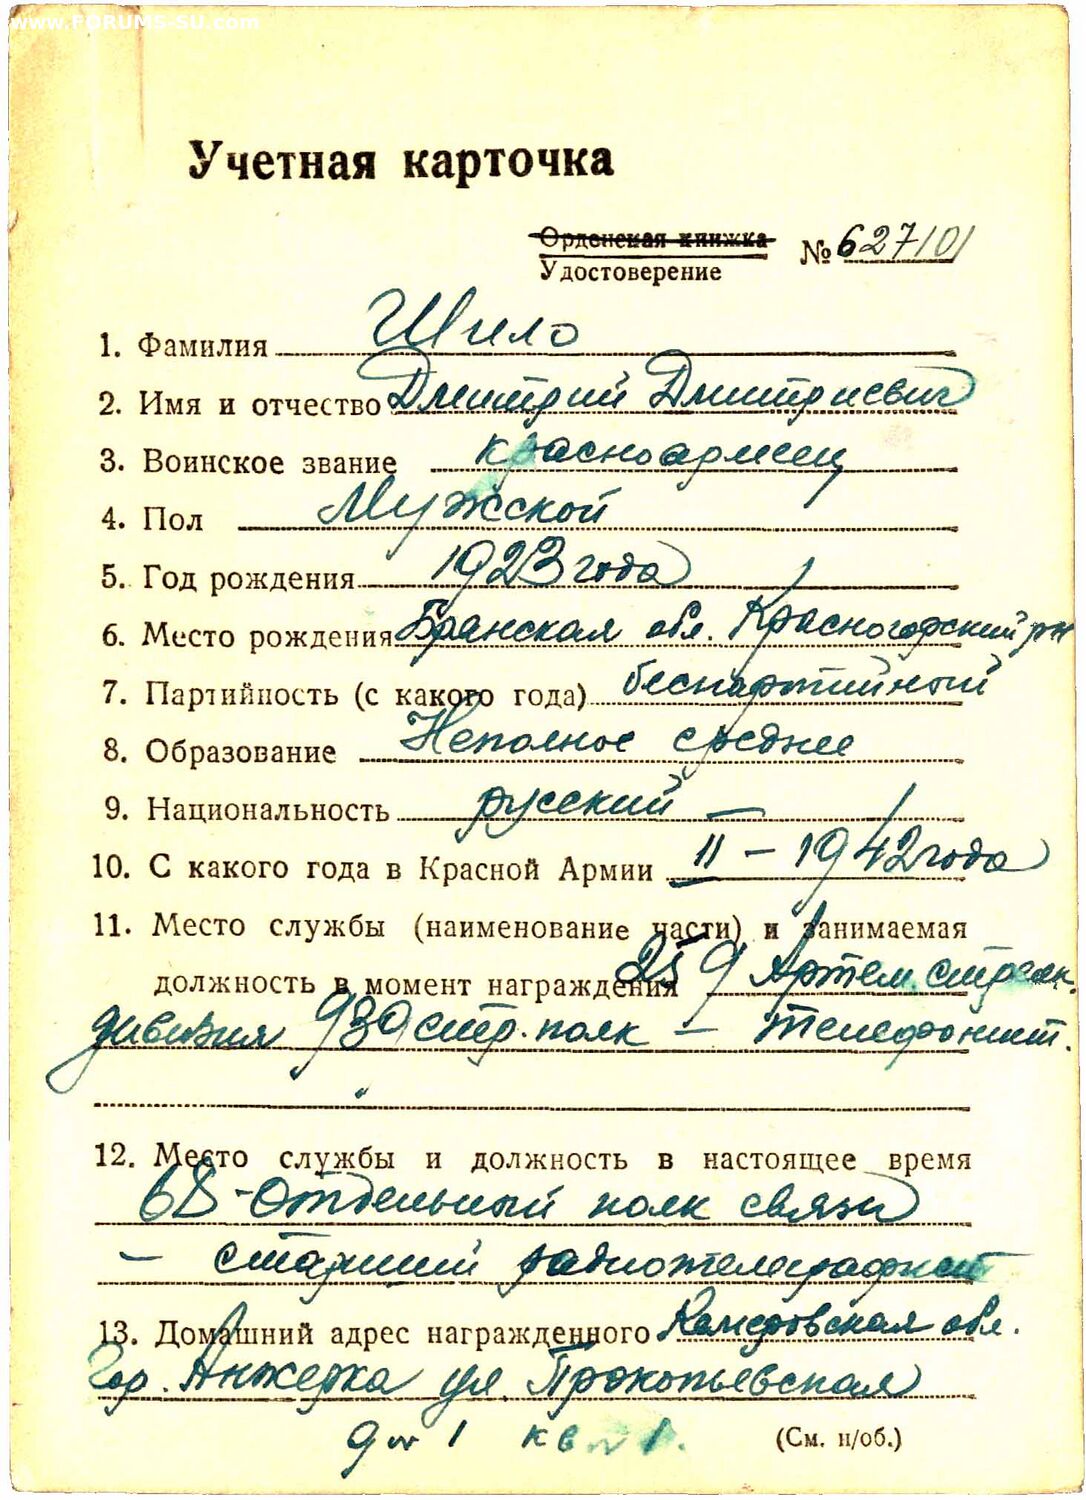 www.FORUMS-SU.com
Учетная карточка
Орденская книжка
Удостоверение № 627101
1. Фамилия Шило
2. Имя и отчество Дмитрий Дмитриевич
3. Воинское звание красноармеец
4. Пол Мужской
5. Год рождения 1923 года
6. Место рождения Брянская обл. Красногорский рн
7. Партийность (с какого года) беспартийный
8. Образование Неполное среднее
9. Национальность русский —
10. С какого года в Красной Армии II – 1942 года
11. Место службы (наименование части) и занимаемая
должность в момент награждения 259 Артем. стрелк.
дивизия 939 стр. полк – телефонист.
12. Место службы и должность в настоящее время
68-отдельный полк связи
– старший радиотелеграфист
13. Домашний адрес награжденного Кемеровская обл.
Гор. Анжерка ул. Прокопьевская
д № 1 кв № 1.
(См. н/об.)